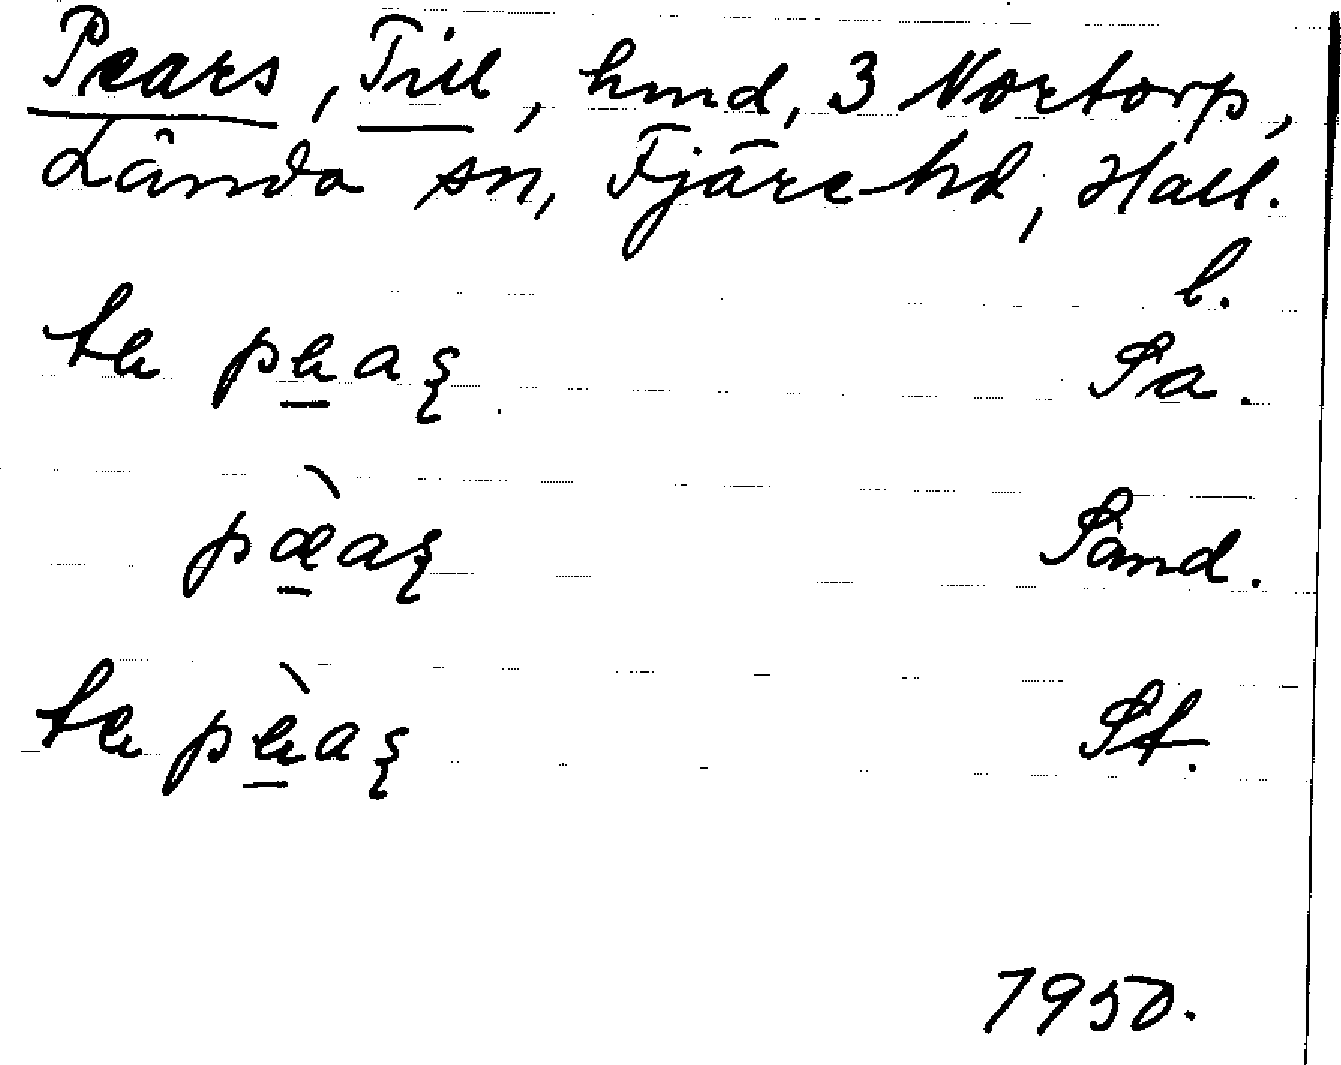 Pears, Till, hmd, 3 Nortorp,
Lända sn, Fjäre hd, Hall.
l.
te pæaʂ Sa.
pæ̀aʂ Sand.
te pæ̀aʂ St.
1950.